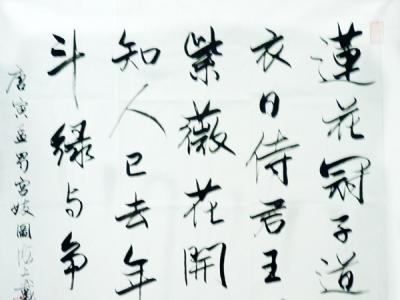 蓮花冠子道
衣日侍君王
紫薇花開
知人已去年
斗緑与争
唐寅孟蜀宮妓圖